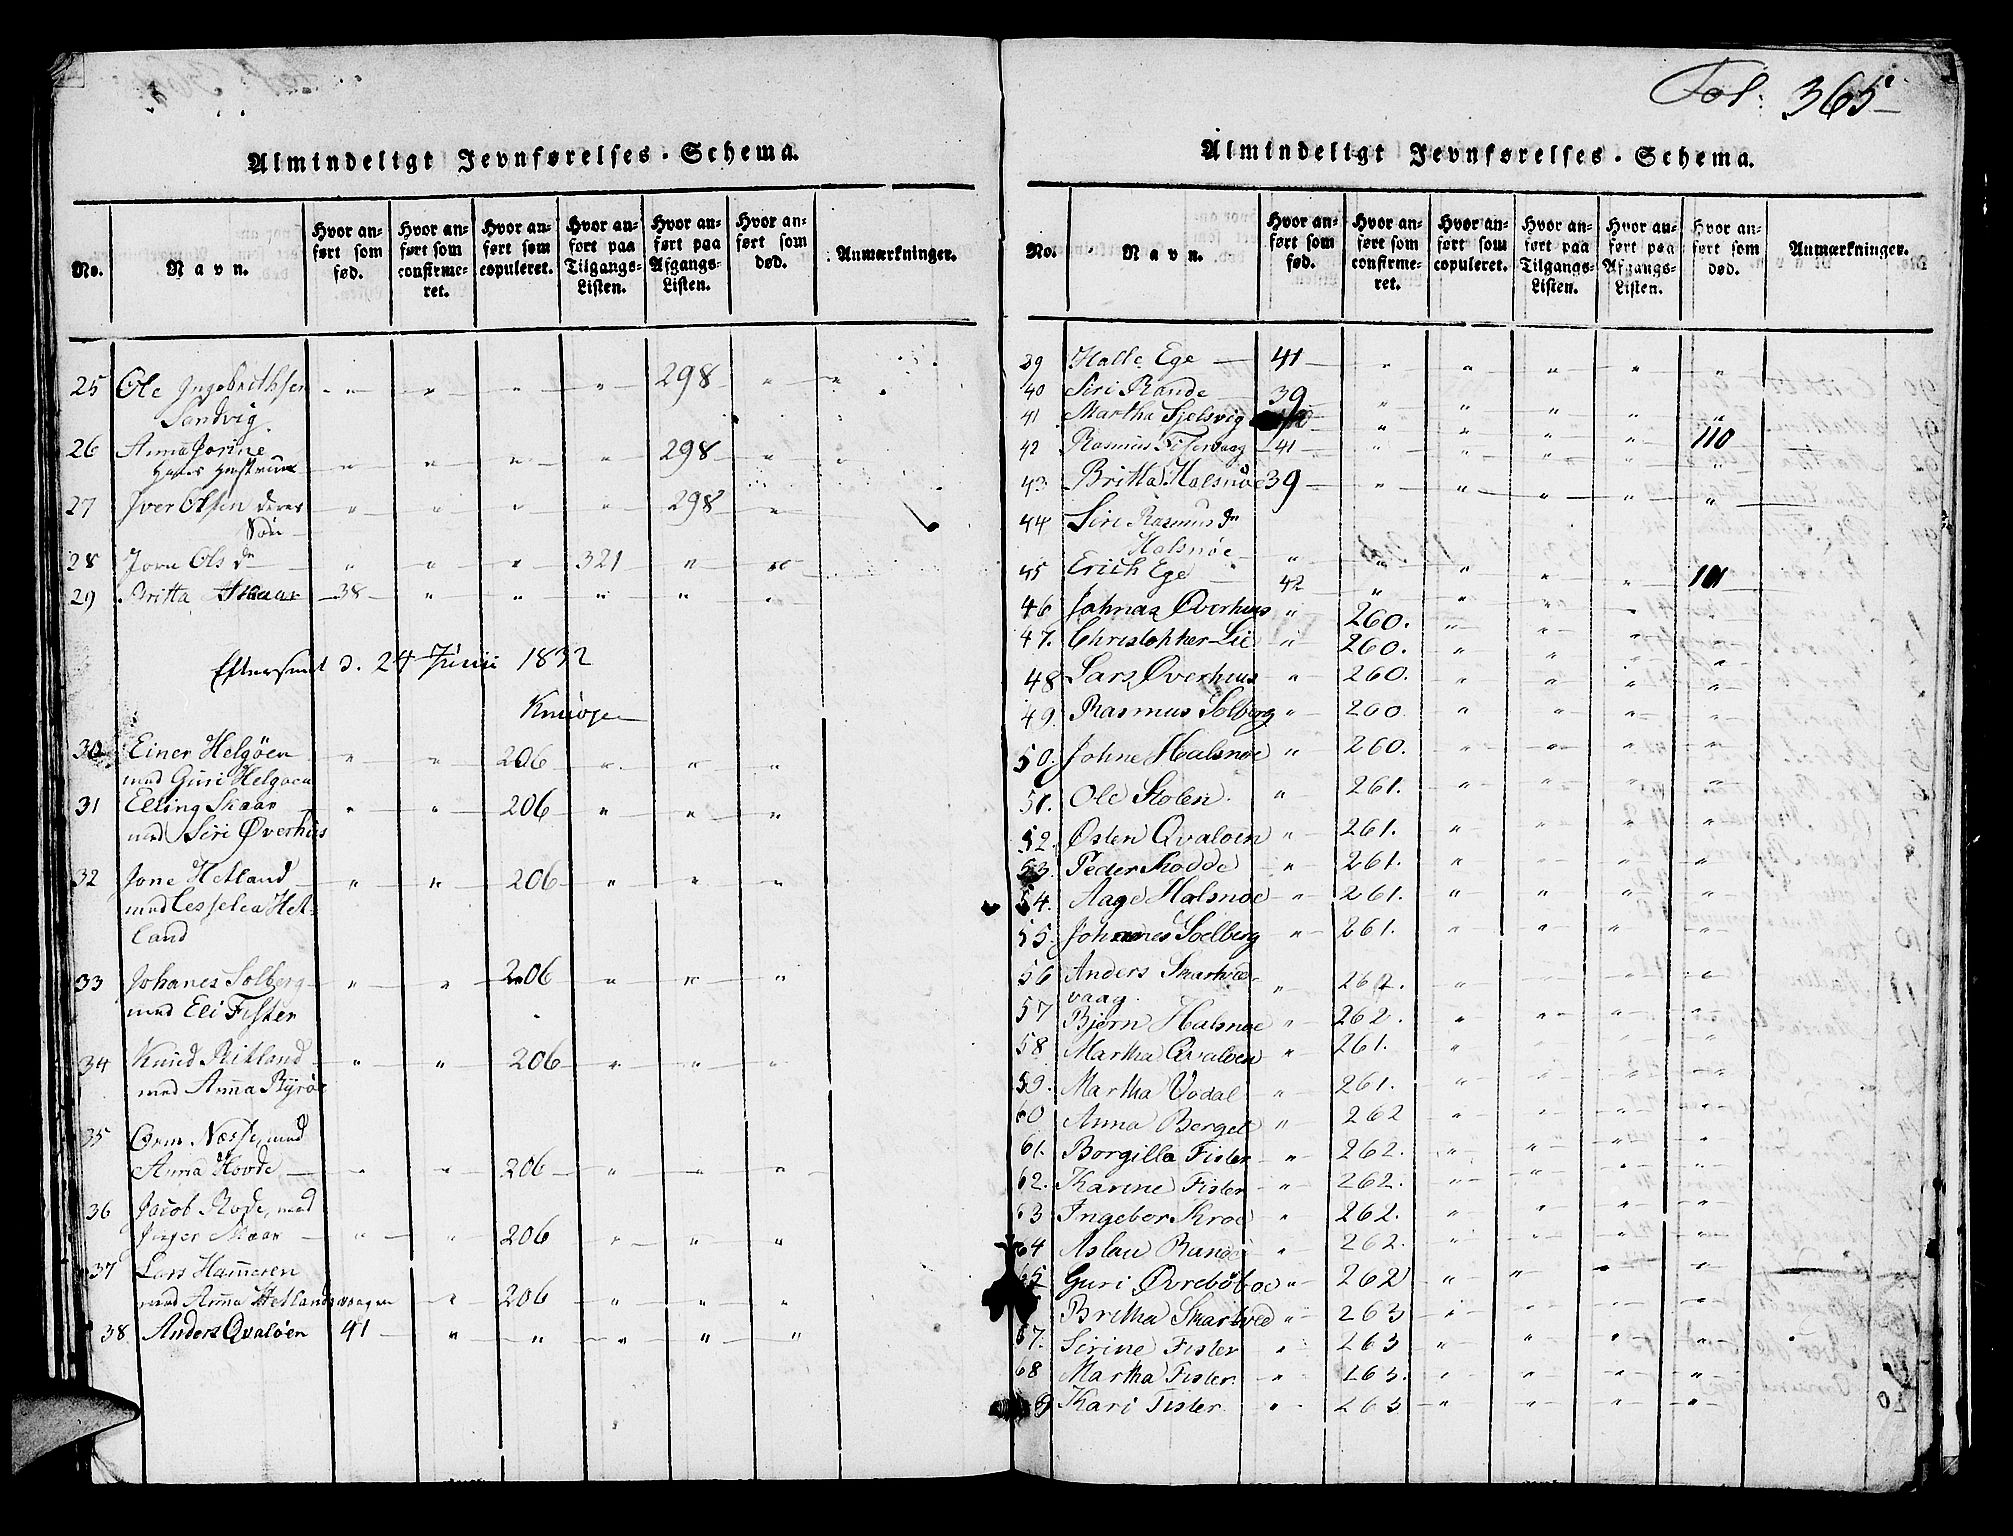 Almindeligt Jevnførelses-Schema.
No.
Navn.
Hvor anført som fød.
Hvor anført som confirmeret.
Hvor anført som copuleret.
Hvor anført paa Tilgangs-Listen.
Hvor anført paa Afgangs-Listen.
Hvor anført som død.
Anmærkninger.
25 Ole Ingebrithsen " " " " 298 " "
Sandvig.
26 Anna Jorine
Hans Hustrue " " " " 298 " "
27 Iver Olsen deres " " " " 298 "
Søn
28 Jorn Ols dn " " " 321 " "
29 Britta Skaar 38 " " " " "
Efterseet d. 24 Junii 1832
30 Einer Helgöen " " 206 " " "
med Guri Helgöen
31 Elling Skaar " " 206 " " "
med Siri Øverhus
32 Jone Hetland " " 206 " " "
med Cesselia Het-
land
33 Johanes Solberg " " 206 " " "
med Eli Fister
34 Knud Rikland " " 206 " " "
med Anna Byröe
35 Orm Næsse, med
Anna Hovde " " 206 " " "
36 Jacob Rode, med
Inger Skaar " " 206 " " "
37 Lars Hameren
med Anna Hetlandsvaagen " 206 " " "
38 Anders Qvalöen 41 " " " " "
Fol: 365
Almindeligt Jevnførelses-Schema.
No.
Navn.
Hvor anført som fød.
Hvor anført som confirmeret.
Hvor anført som copuleret.
Hvor anført paa Tilgangs-Listen.
Hvor anført paa Afgangs-Listen.
Hvor anført som død.
Anmærkninger.
39 Halle Ege 41 " " " " "
40 Siri Rande 39 " " " " "
41 Martha Tjelsvig " " " " 110
42 Rasmus Fistervaag 41 " " " " "
43 Britta Halsnöe 39 " " " " "
44 Siri Rasmus dn
Halsnøe " " " " "
45 Erich Ege 42 " " " " 101
46 Johnas Øverhus " 260. " " "
47. Christopher Lie " 260. " " " "
48 Lars Øverhus " 260. " " " "
49. Rasmus Solberg " 260 " " " "
50. Johne Halsnøe " 260. " " " "
51. Ole Stolen. " 261. " " " "
52. Østen Qvaløen " 261. " " " "
53. Peder Kodde " 261. " " " "
54. Aage Halsnøe " 261. " " " "
55. Johannes Soelberg " 261. " " " "
56 Anders Skartved-
vaag. " 262. " " " "
57 Bjørn Halsnøe " 262. " " " "
58 Martha Qvaløen " 261. " " " "
59. Martha Vodal " 261. " " " "
60. Anna Berget " 262 " " " "
61. Borgilla Fister " 262. " " " "
62. Karine Fister " 262. " " " "
63 Ingebor Kroe " 262. " " " "
64 Aslau Rande " 262. " " " "
65 Guri Øvrebøboe " 262 " " " "
Bretha Skartved " 263 " " " "
67. Sirine Fister " 263 " " " "
68 Martha Fister. " 263. " " " "
Kari Fister " 263 " " " "